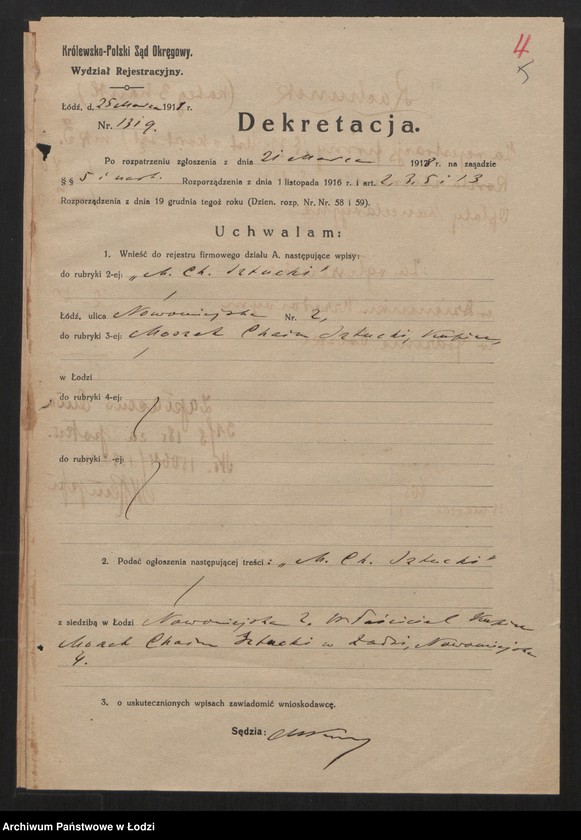 4
5
Królewsko-Polski Sąd Okręgowy.
Wydział Rejestracyjny.
Łódź, d. 25 Marca 1918 r.
Nr. 1319.
Dekretacja.
Po rozpatrzeniu zgłoszenia z dnia 21 Marca 1918 r. na zasadzie
§ § 5 i nast. Rozporządzenia z dnia 1 listopada 1916 r. i art. 2, 3, 5 i 13
Rozporządzenia z dnia 19 grudnia tegoż roku (Dzien. rozp. Nr. Nr. 58 i 59).
Uchwalam:
1. Wnieść do rejestru firmowego działu A. następujące wpisy:
do rubryki 2-ej: „M. Ch. Sztucki"
Łódź, ulica Nowomiejska Nr. 2,
do rubryki 3-ej: Moszek Chaim Sztucki, Kupiec
w Łodzi
do rubryki 4-ej:
do rubryki -ej:
2. Podać ogłoszenia następującej treści: „M. Ch. Sztucki"
z siedzibą w Łodzi Nowomiejska 2. Właściciel Kupiec
Chaim Sztucki w Łodzi, Nowomiejska
4.
3. o uskutecznionych wpisach zawiadomić wnioskodawcę.
Sędzia:
Archiwum Państwowe w Łodzi